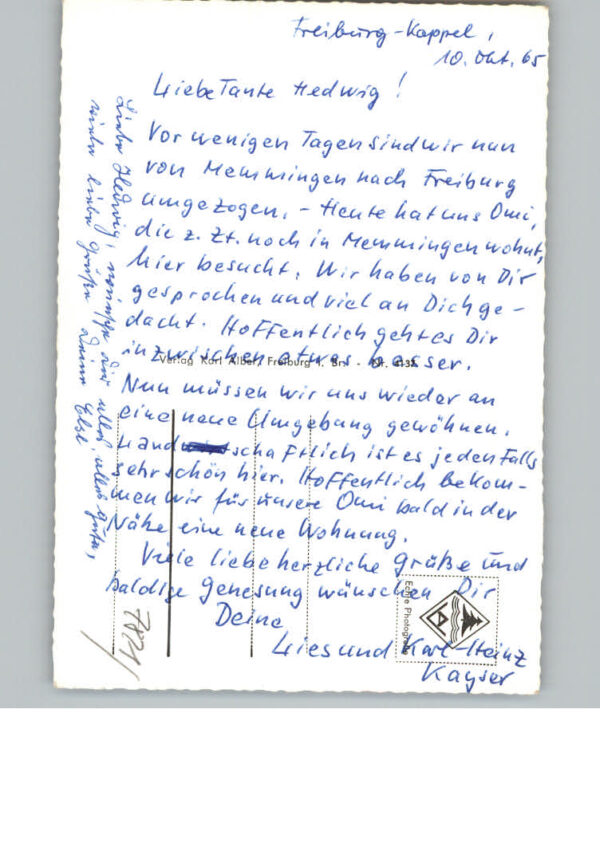 Freiburg-Kappel,
10. Okt. 65
Liebe Tante Hedwig!
Vor wenigen Tagen sind wir nun
von Memmingen nach Freiburg
umgezogen. - Heute hat uns Omi,
die z. Zt. noch in Memmingen wohnt,
hier besucht. Wir haben von Dir
gesprochen und viel an Dich ge-
dacht. Hoffentlich geht es Dir
inzwischen etwas besser.
Verlag Karl Alber, Freiburg i. Br. - Nr.
Nun müssen wir uns wieder an
eine neue Umgebung gewöhnen.
Landschaftlich ist es jedenfalls
sehr schön hier. Hoffentlich bekom-
men wir für unsere Omi bald in der
Nähe eine neue Wohnung.
Viele liebe herzliche Grüße und
baldige Genesung wünschen Dir
Deine
Lies und Karl-Heinz
Kayser
Liebe Hedwig, wünsche Dir alles, alles Gute,
viele liebe Grüße Deine Else
7821
Echte Photografie